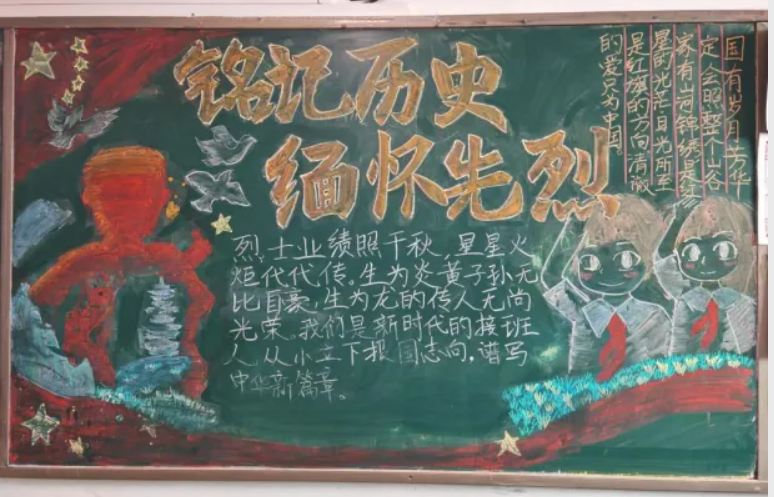 铭记历史
缅怀先烈
国有岁月芳华
定人会照整个山谷
家有山河锦绣是红
星的光芒目光所至
是红旗的方向清澈
的爱只为中国。
烈士业绩照千秋，星星火
炬代代传。生为炎黄子孙无
比自豪，生为龙的传人无尚
光荣。我们是新时代的接班
人，从小立下报国志向，谱写
中华新篇章。